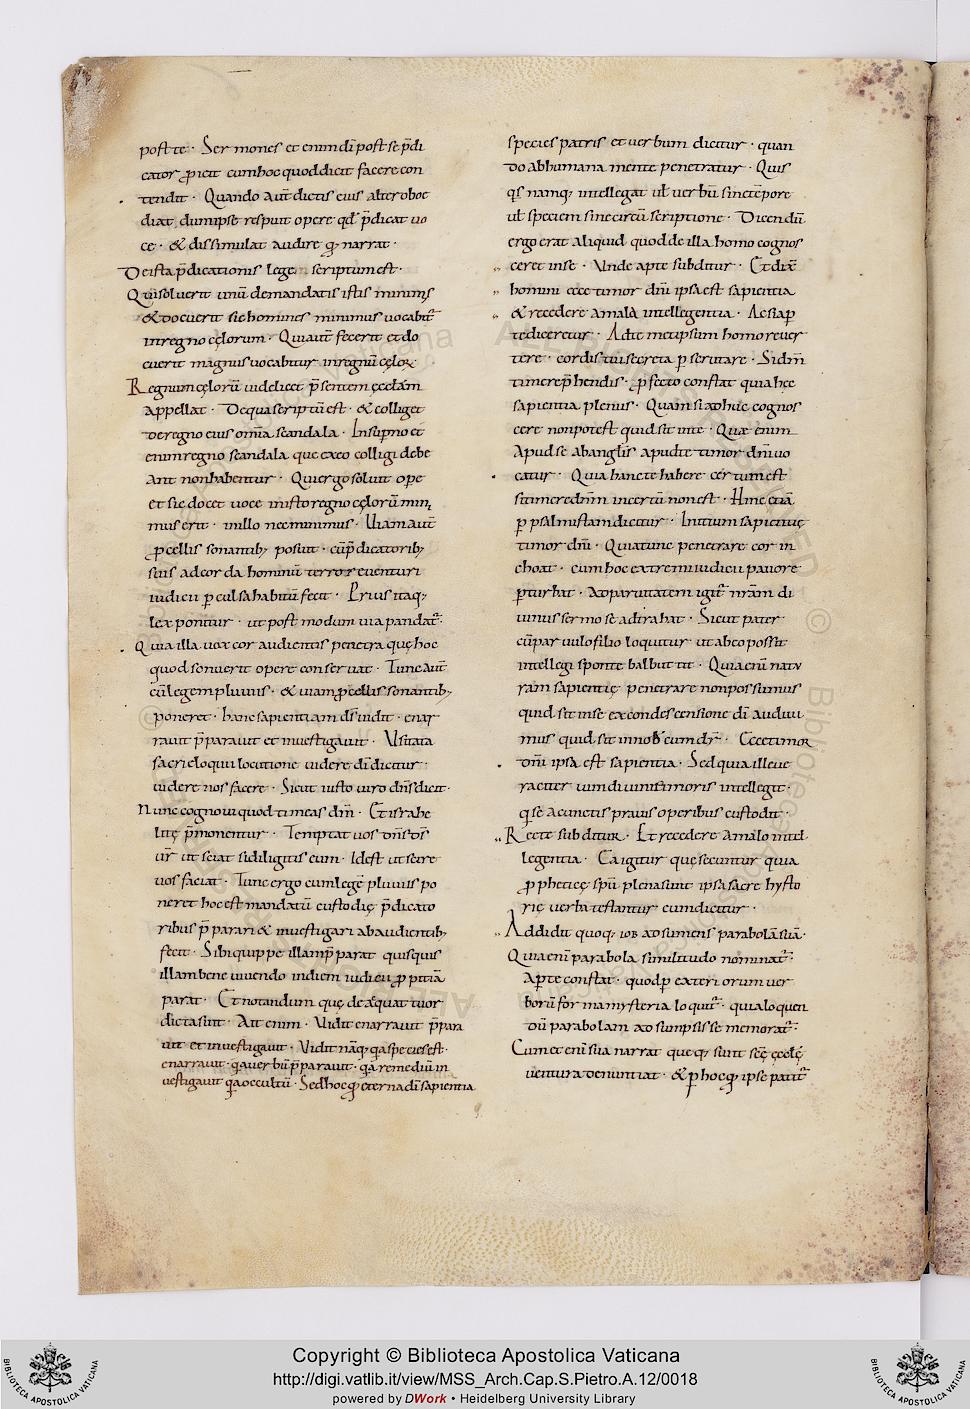 post te · Sermones et enim dī post se p̄di
cator p̱icit cum hoc quod dicit facere con
tendit · Quando aut̄ dictis eius alter oboe
diat dum ipse respuit opere qđ p̄dicat uo
ce · & dissimulat audire q; narrat ·
De ista p̄dicationis lege scriptum est ·
Qui soluerit unū de mandatis istis minimis
& docuerit sic homines minimus uocabit̄
in regno cęlorum · Qui aut̄ fecerit et do
cuerit magnus uocabitur in regnū cęloꝝ
Regnum cęlorū uidelicet p̄sentem ęcclām
appellat · De qua scriptū est · & colliget
de regno eius omīa scandala · In sup̄no et
enim regno scandala que ex eo colligi debe
ant non habentur · Qui ergo soluit ope
et sic docet uoce in isto regno cęlorū mini
mus erit · in illo nec minimus · Uiam aut̄
p̱cellis sonantib; posuit · cū p̄dicatorib;
suis ad corda hominū terrore uenturi
iudicii perculsa habitū fecit · Prius itaq;
lex ponitur · ut post modum uia pandat̄
Quia illa uox cor audientis penetrat quę hoc
quod sonuerit opere conseruat · Tunc aut̄
cū legem pluuiis · & uiam p̱cellis sonantib;
poneret · hanc sapientiam dš uidit · enar
rauit p̄parauit et inuestigauit · Usitata
sacri eloquii locutione uidere dī dicitur
uidere nos facere · Sicut iusto uiro dn̄s dicit ·
Nunc cognoui quod timeas dn̄m · Et israhe
litę p̄monentur · Temptat uos dn̄s dš
ur̄ ut sciat si diligitis eum · Idest ut scire
uos faciat · Tunc ergo cum legē pluuiis po
neret hoc est mandatū custodię p̄dicato
ribus p̄parari & inuestigari ab audientib;
fecit · Sibi quippe illam p̄parat quisquis
illam bene uiuendo in diem iudicii p̱pitiā
parat · Et notandum quę de ea quattuor
dicta sunt · Ait enim · Uidit enarrauit p̄para
uit et inuestigauit · Uidit nāq; qa species est ·
enarrauit · qa uerbū p̄parauit · qa remediū in
uestigauit qa occultū · Sed hoc q; ęterna dī sapientia
species patris et uerbum dicitur · quan
do ab humana mente penetratur · Quis
qs namq; intellegat uł uerbū sine tēpore
uł speciem sine circūscriptione · Dicendū
ergo erat aliquid quod de illa homo cognos
ceret in se · Unde apte subditur · Et dix̄
homini ecce timor dn̄i ipsa est sapientia
& recedere a malo intellegentia · Ac si ap
te diceretur · Ad te metipsum homo reuer
tere · cordis tui secreta perscrutare · Si dn̄m
timere p̄hendis · p̱fecto constat quia hac
sapientia plenus · Quam si adhuc cognos
cere non potest quid sit in te · Quæ enim
apud se ab anglīs apud te timor dn̄i uo
catur · Quia hanc te habere certum est
si timere dn̄m incertū non est · Hinc etiā
p psalmistam dicitur · Initium sapientię
timor dn̄i · Quia tunc penetrare cor in
choat · cum hoc extremi iudicii pauore
pturbat · Ad paruitatem igit̄ nr̄am di
uinus sermo se adtrahat · Sicut pater
cū paruulo filio loquitur ut ab eo possit
intellegi sponte balbuttit · Quia enī natu
ram sapientię penetrare non possumus
quid sit in se ex condescensione dī audiui
mus quid sit in nobis cum dr̄ · Ecce timor
dn̄i ipsa est sapientia · Sed quia ille ue
raciter uim diuini timoris intellegit ·
q se a cunctis prauis operibus custodit ·
Recte subditur · Et recedere a malo intel
legentia · Ea igitur quę secuntur quia
p̱phetięę spū plena sunt ipsa sacrę hysto
rię uerba testantur cum dicitur ·
Addidit quoq; iob adsumens parabolā suā ·
Quia enī parabola similitudo nominat̄ ·
Apte constat · quod p exteriorum uer
borū formam mysteria loquit̄ · quia loquen
dū parabolam adsumpsisse memorat̄ ·
Cum et enī sua narrat queq; sunt scę̄ ęcclę̄
uentura denuntiat · & p hoc q; ipse patit̄
Copyright © Biblioteca Apostolica Vaticana
http://digi.vatlib.it/view/MSS_Arch.Cap.S.Pietro.A.12/0018
powered by DWork • Heidelberg University Library